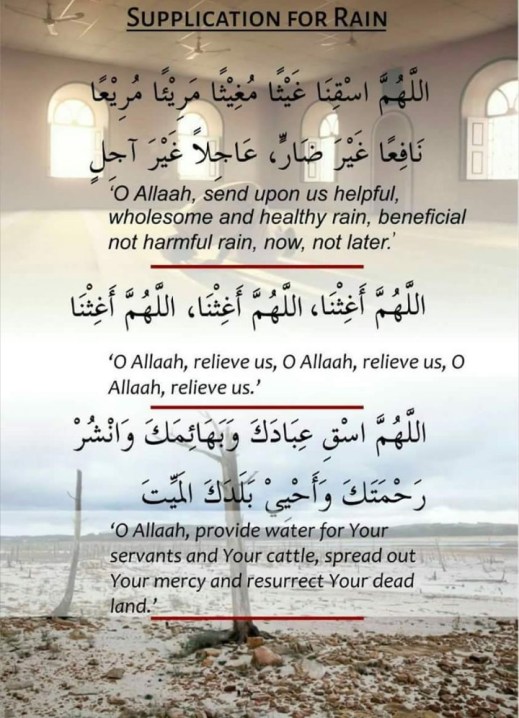 Supplication for Rain
اللَّهُمَّ اسْقِنَا غَيْثًا مُغِيْثًا مَرِيْئًا مُرِيْعًا
نَافِعًا غَيْرَ ضَارٍّ، عَاجِلاً غَيْرَ آجِلٍ
‘O Allaah, send upon us helpful,
wholesome and healthy rain, beneficial
not harmful rain, now, not later.’
اللَّهُمَّ أَغِثْنَا، اللَّهُمَّ أَغِثْنَا، اللَّهُمَّ أَغِثْنَا
‘O Allaah, relieve us, O Allaah, relieve us, O
Allaah, relieve us.’
اللَّهُمَّ اسْقِ عِبَادَكَ وَبَهَائِمَكَ وَانْشُرْ
رَحْمَتَكَ وَأَحْيِيْ بَلَدَكَ المَيِّتَ
‘O Allaah, provide water for Your
servants and Your cattle, spread out
Your mercy and resurrect Your dead
land.’